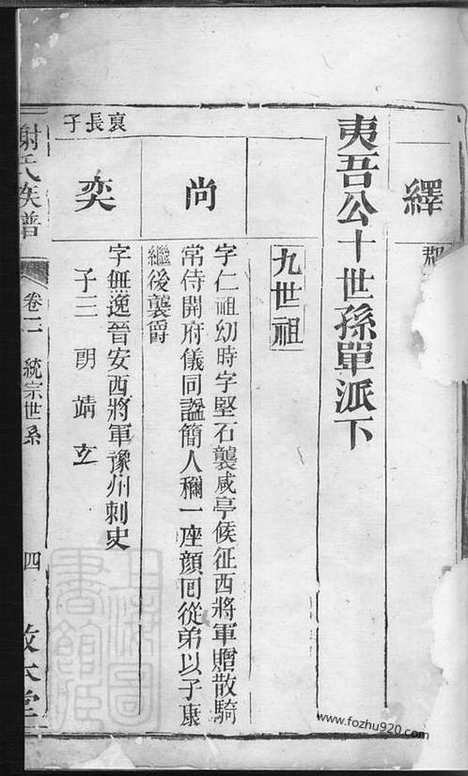 繹
郡
夷吾公十世孫單派下
九世祖
尚
字仁祖幼時字堅石襲咸亭候征西將軍贈散騎
常侍開府儀同諡簡人稱一座顔囘從弟以子康
繼後襲爵
裒長子
奕
字無逸晉安西將軍豫州刺史
子三 朗 靖 玄
謝氏族譜
卷二 統宗世系
四
敦本堂
上海圖書館藏
www.fozhu920.com